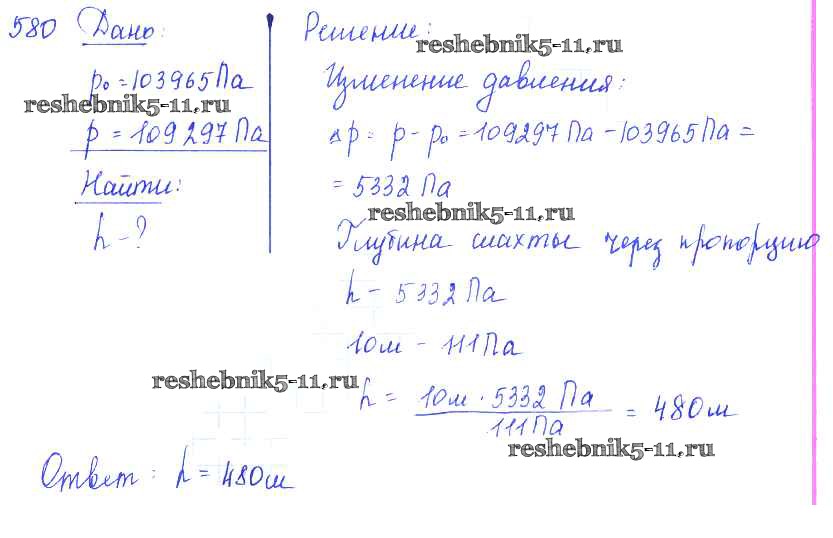 580 Дано:
p₀ = 103965 Па
reshebnik5-11.ru
p = 109297 Па
Найти:
h - ?
Решение:
reshebnik5-11.ru
Изменение давления:
Δp = p - p₀ = 109297 Па - 103965 Па =
= 5332 Па
reshebnik5-11.ru
Глубина шахты через пропорцию
h - 5332 Па
10м - 111 Па
reshebnik5-11.ru
h = 10м · 5332 Па / 111 Па = 480м
reshebnik5-11.ru
Ответ: h = 480м